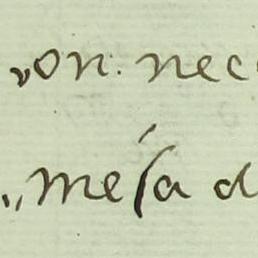 „on. nec
„meſa d